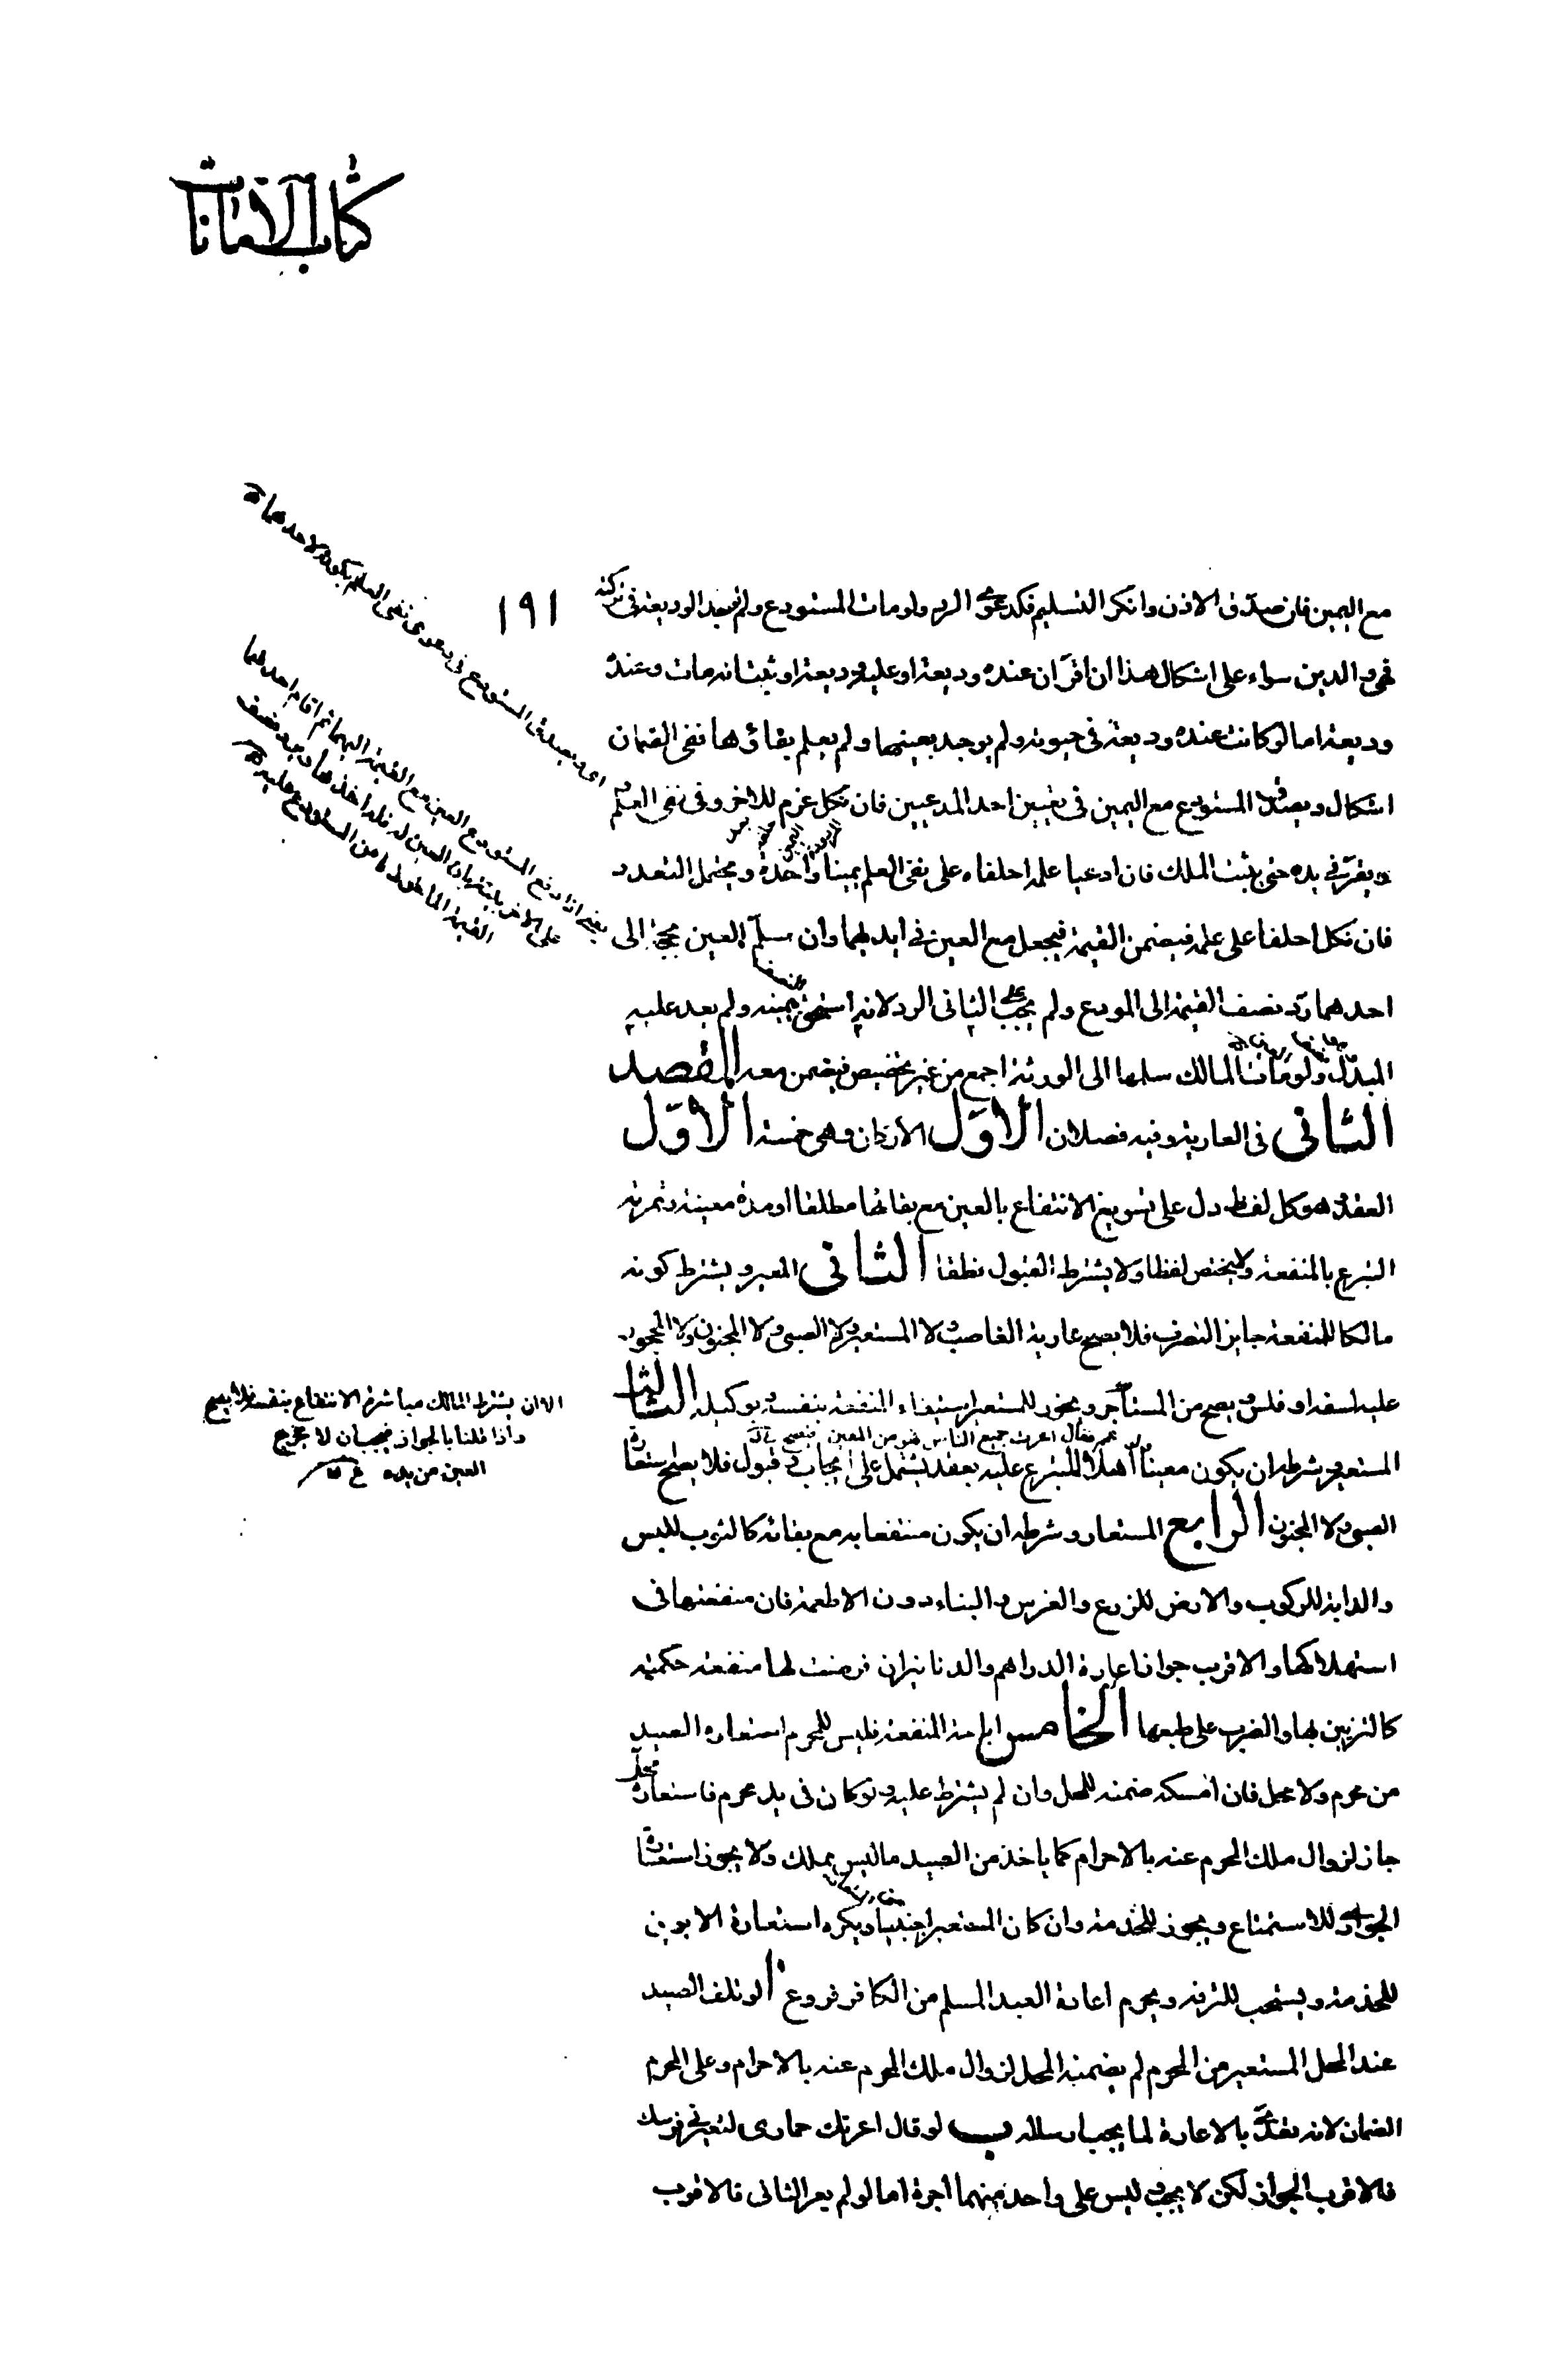 كتاب الأمانات
١٩١
مع اليمين فان صدق الاذن وانكر التسليم فكدعوى الرد ولو مات المستودع ولم توجد الوديعة فى تركته
فهى والدين سواء على اشكال هذا ان اقرّ ان عنده وديعة او عليه وديعة او ثبت انه مات وعنده
وديعة اما لو كانت عنده وديعة فى حيوته ولم يوجد بعينها ولم يعلم بقاؤها ففى الضمان
اشكال ويصدق المستودع مع اليمين فى تعيين احد المدعيين فان نكل غرم للاخر وفى نفى العلم
ويقرّ فى يده حتى يثبت المالك فان ادعيا علمه احلفاه على نفى العلم يمينا واحدة ويحتمل التعدد
فان نكل احلفا على علمه فيضمن القيمة فيجعل مع العين فى ايديهما وان سلّم العين بحجة الى
احدهما ردّ نصف القيمة الى المودع ولم يجب على الثانى الرد لانه استحق بيمينه ولم يعد عليه
المبدل ولو مات المالك سلمها الى الورثة اجمع من غير تخصيص فيضمن معه المقصد
الثانى فى العارية وفيه فصلان الاوّل الاركان وهى خمسة الاوّل
العقد وهو كل لفظ دل على تسويغ الانتفاع بالعين مع بقائها مطلقا او مدة معينة وثمرته
التبرع بالمنفعة ولا يختص لفظا ولا يشترط القبول نطقا الثانى المعير ويشترط كونه
مالكا للمنفعة جايز التصرف فلا يصح عارية الغاصب ولا المستعير ولا الصبى ولا المجنون ولا المحجور
عليه لسفه او فلس ويصح من المستأجر ويجوز للمستعير استيفاء المنفعة بنفسه وبوكيله الثالث
المستعير وشرطه ان يكون معينا اهلا للتبرع عليه بعقد يشتمل على ايجاب وقبول فلا يصح استعارة
الصبى ولا المجنون الرابع المستعار وشرطه ان يكون منتفعا به مع بقائه كالثوب للبس
والدابة للركوب والارض للزرع والغرس والبناء دون الاطعمة فان منفعتها فى
استهلاكها والاقرب جواز اعارة الدراهم والدنانير ان فرضت لها منفعة حكمية
كالتزيين بها والضرب على طبعها الخامس اباحة المنفعة فليس للمحرم استعارة الصيد
من محرم ولا محل فان امسكه ضمنه للمحل وان لم يشترط عليه ولو كان فى يد محرم فاستعاره محل
جاز لزوال ملك المحرم عنه بالاحرام كما ياخذ من الصيد ما ليس بملك ولا يجوز استعارة
الجوارى للاستمتاع ويجوز للخدمة وان كان المستعير اجنبيا ويكره استعارة الابوين
للخدمة ويستحب للترفه ويحرم اعارة العبد المسلم من الكافر فروع ا لو تلف الصيد
عند المحل المستعير من المحرم لم يضمنه المحل لزوال ملك المحرم عنه بالاحرام وعلى المحرم
الضمان لانه تعدّى بالاعارة لما يجب ارساله ب لو قال اعرتك حمارى لتعيرنى فرسك
فالاقرب الجواز لكن لا يجب وليس على واحد منهما اجرة اما لو لم يعر الثانى فالاقرب
اى ويصدق المستودع فى دعوى نفى العلم بكونه لاحدهما
يعنى اذا دفع المستودع العين مع القيمة اليهما ثم اقام احدهما
على الاخر بينة بان العين له فله اخذها ويرد نصف
القيمة الماخوذة من المستودع عليه
الا ان يشترط المالك مباشرة الانتفاع بنفسه فلا يصح
واذا قلنا بالجواز فيجب ان لا يخرج
العين من يده